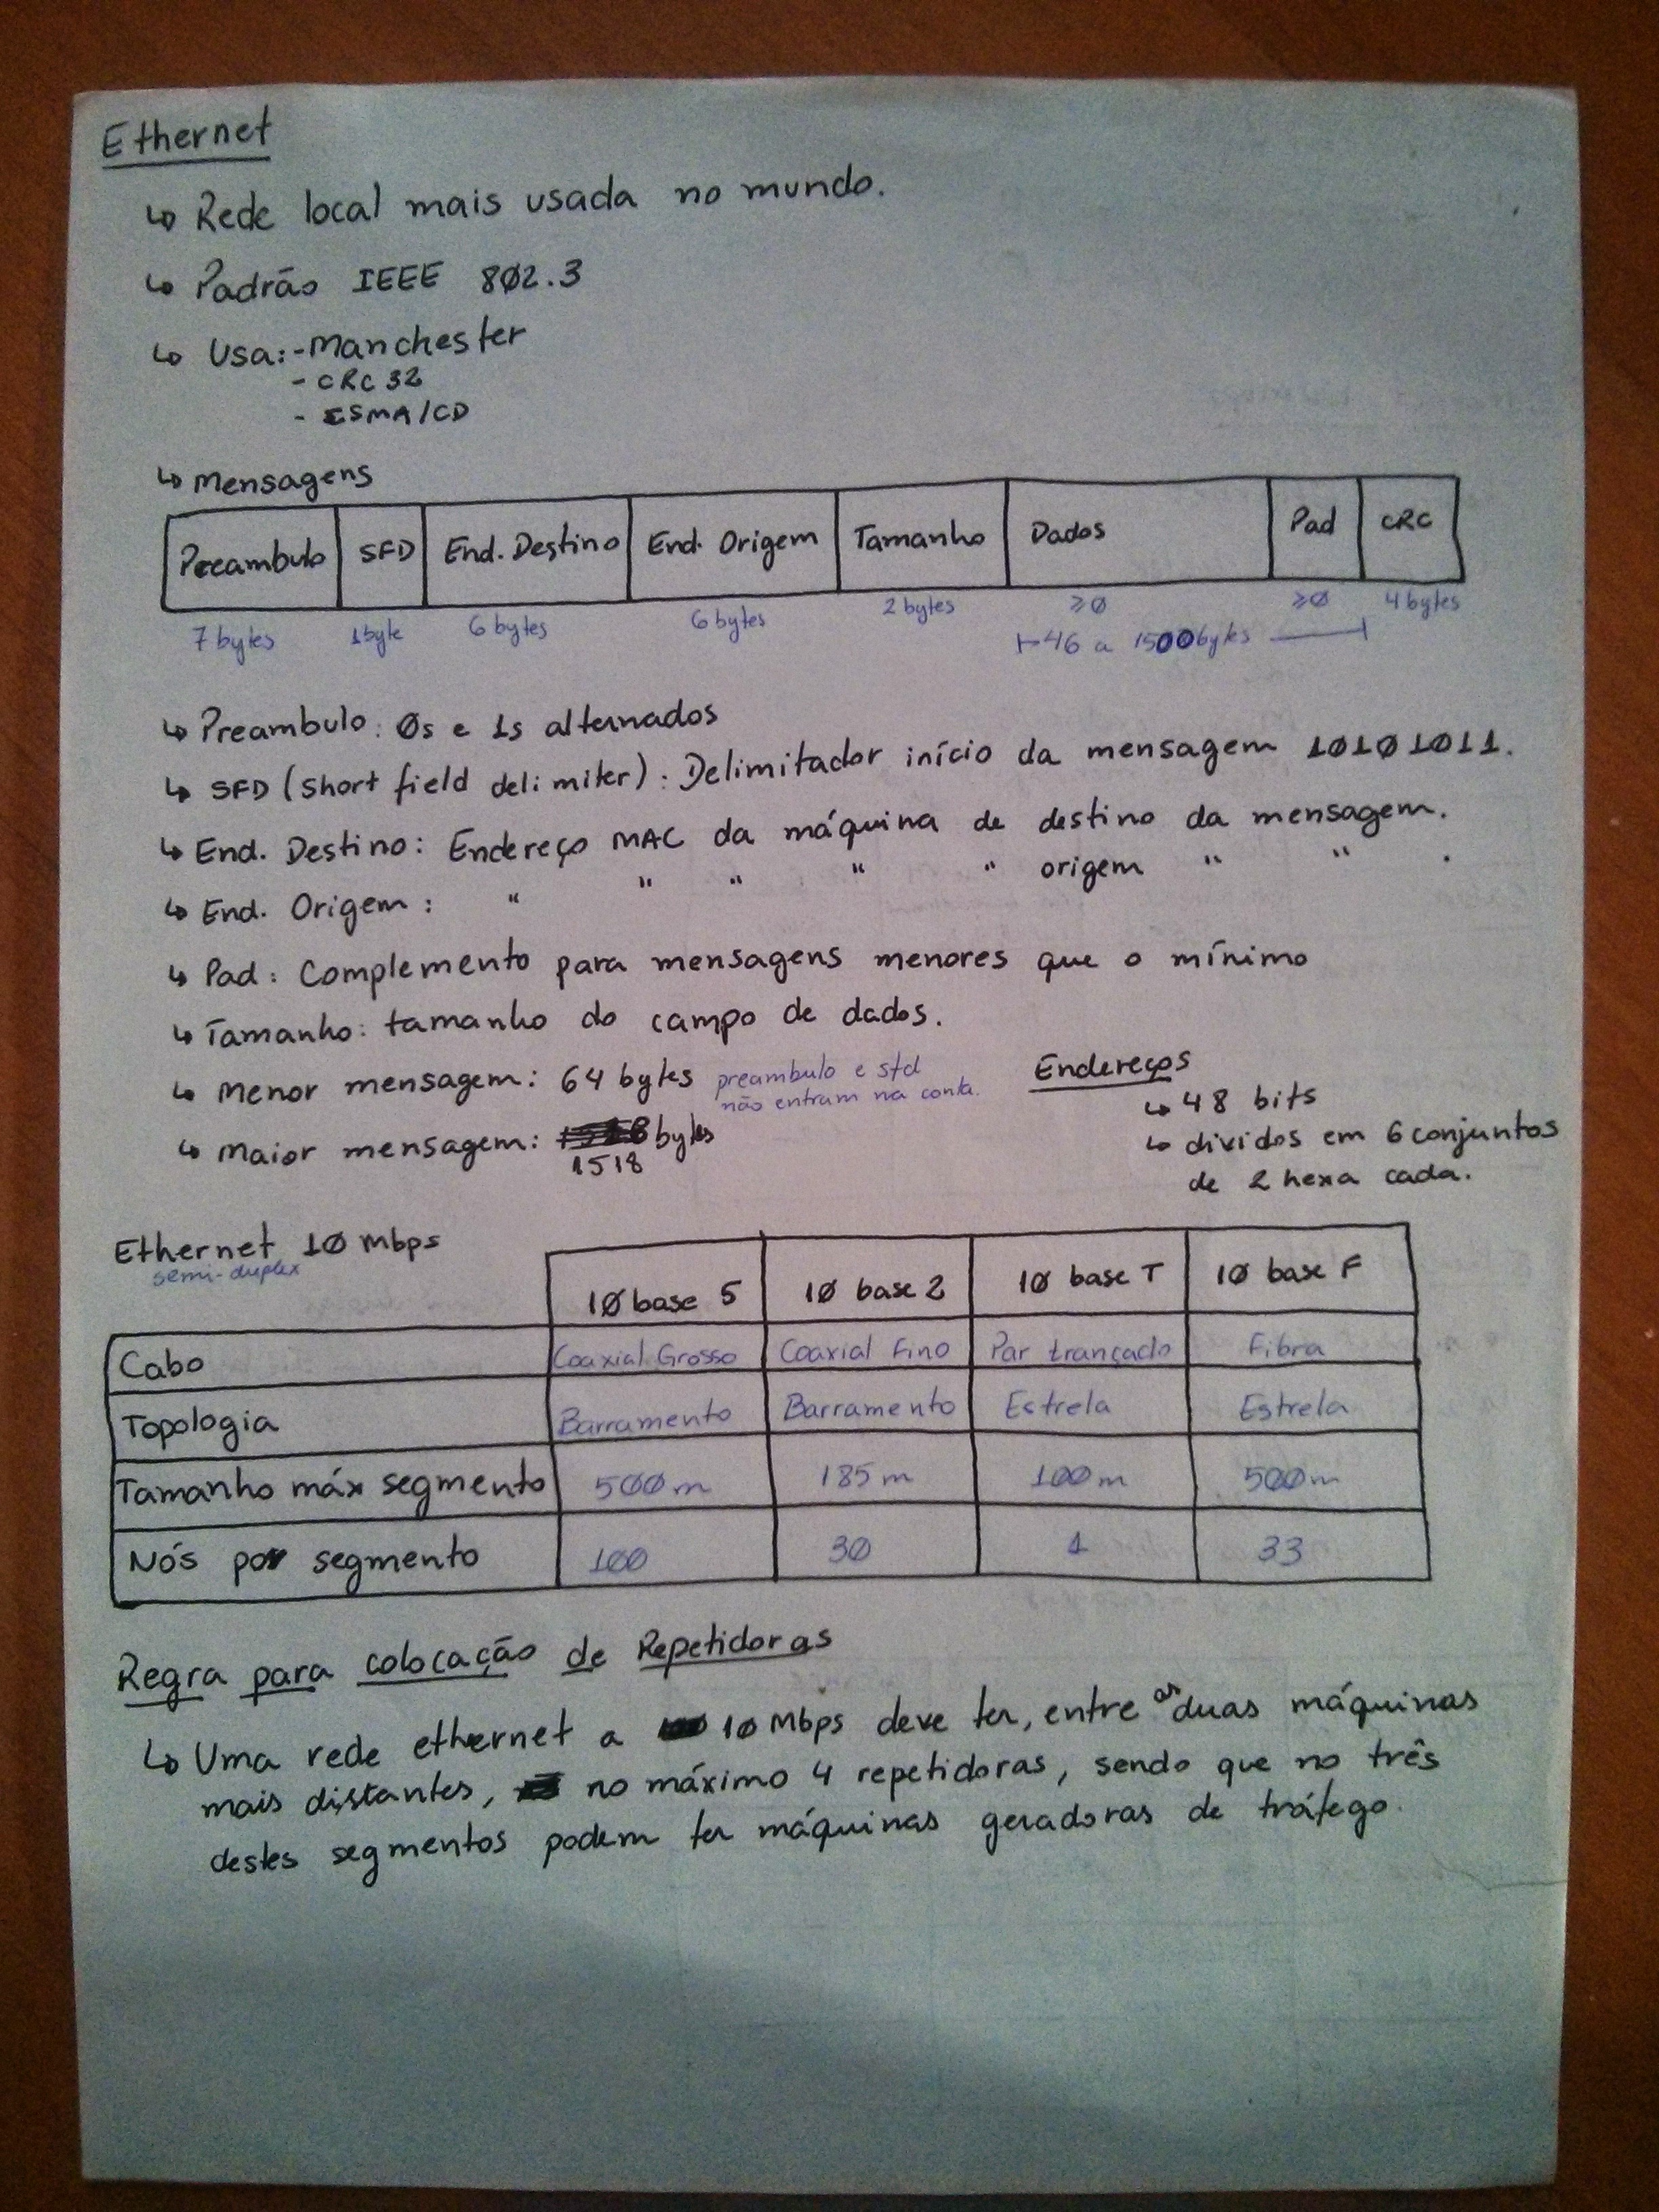 Ethernet
↳ Rede local mais usada no mundo.
↳ Padrão IEEE 802.3
↳ Usa: - Manchester
- CRC 32
- CSMA/CD
↳ Mensagens
Preambulo SFD End. Destino End. Origem Tamanho Dados Pad CRC
7 bytes 1 byte 6 bytes 6 bytes 2 bytes ≥0 ≥0 4 bytes
46 a 1500 bytes
↳ Preambulo: 0s e 1s alternados
↳ SFD (short field delimiter): Delimitador início da mensagem 10101011.
↳ End. Destino: Endereço MAC da máquina de destino da mensagem.
↳ End. Origem: " " " " " origem " " .
↳ Pad: Complemento para mensagens menores que o mínimo
↳ Tamanho: tamanho do campo de dados.
↳ Menor mensagem: 64 bytes preambulo e sfd
não entram na conta.
↳ Maior mensagem: bytes
1518
Endereços
↳ 48 bits
↳ dividos em 6 conjuntos
de 2 hexa cada.
Ethernet 10 Mbps
semi-duplex
10 base 5 10 base 2 10 base T 10 base F
Cabo Coaxial Grosso Coaxial Fino Par trançado Fibra
Topologia Barramento Barramento Estrela Estrela
Tamanho máx segmento 500m 185m 100m 500m
Nós por segmento 100 30 1 33
Regra para colocação de Repetidoras
↳ Uma rede ethernet a 10 Mbps deve ter, entre as duas máquinas
mais distantes, no máximo 4 repetidoras, sendo que no três
destes segmentos podem ter máquinas geradoras de tráfego.